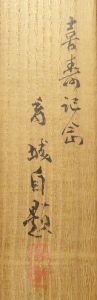 喜寿記念
秀城自題